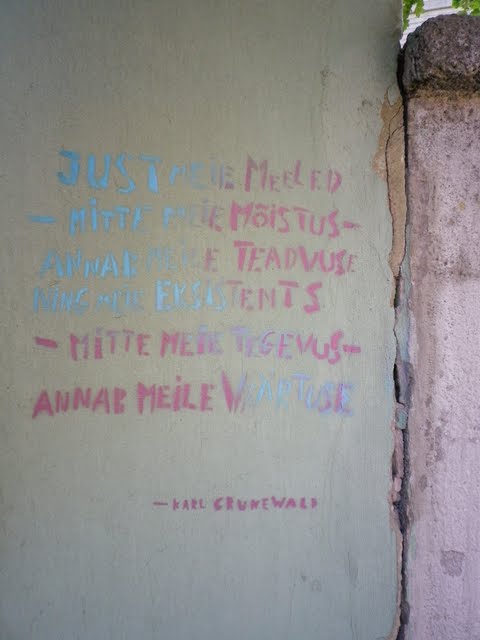 JUST MEIE MEELED
— MITTE MEIE MÕISTUS —
ANNAB MEILE TEADVUSE
NING MEIE EKSISTENTS
— MITTE MEIE TEGEVUS —
ANNAB MEILE VÄÄRTUSE
— KARL GRUNEWALD